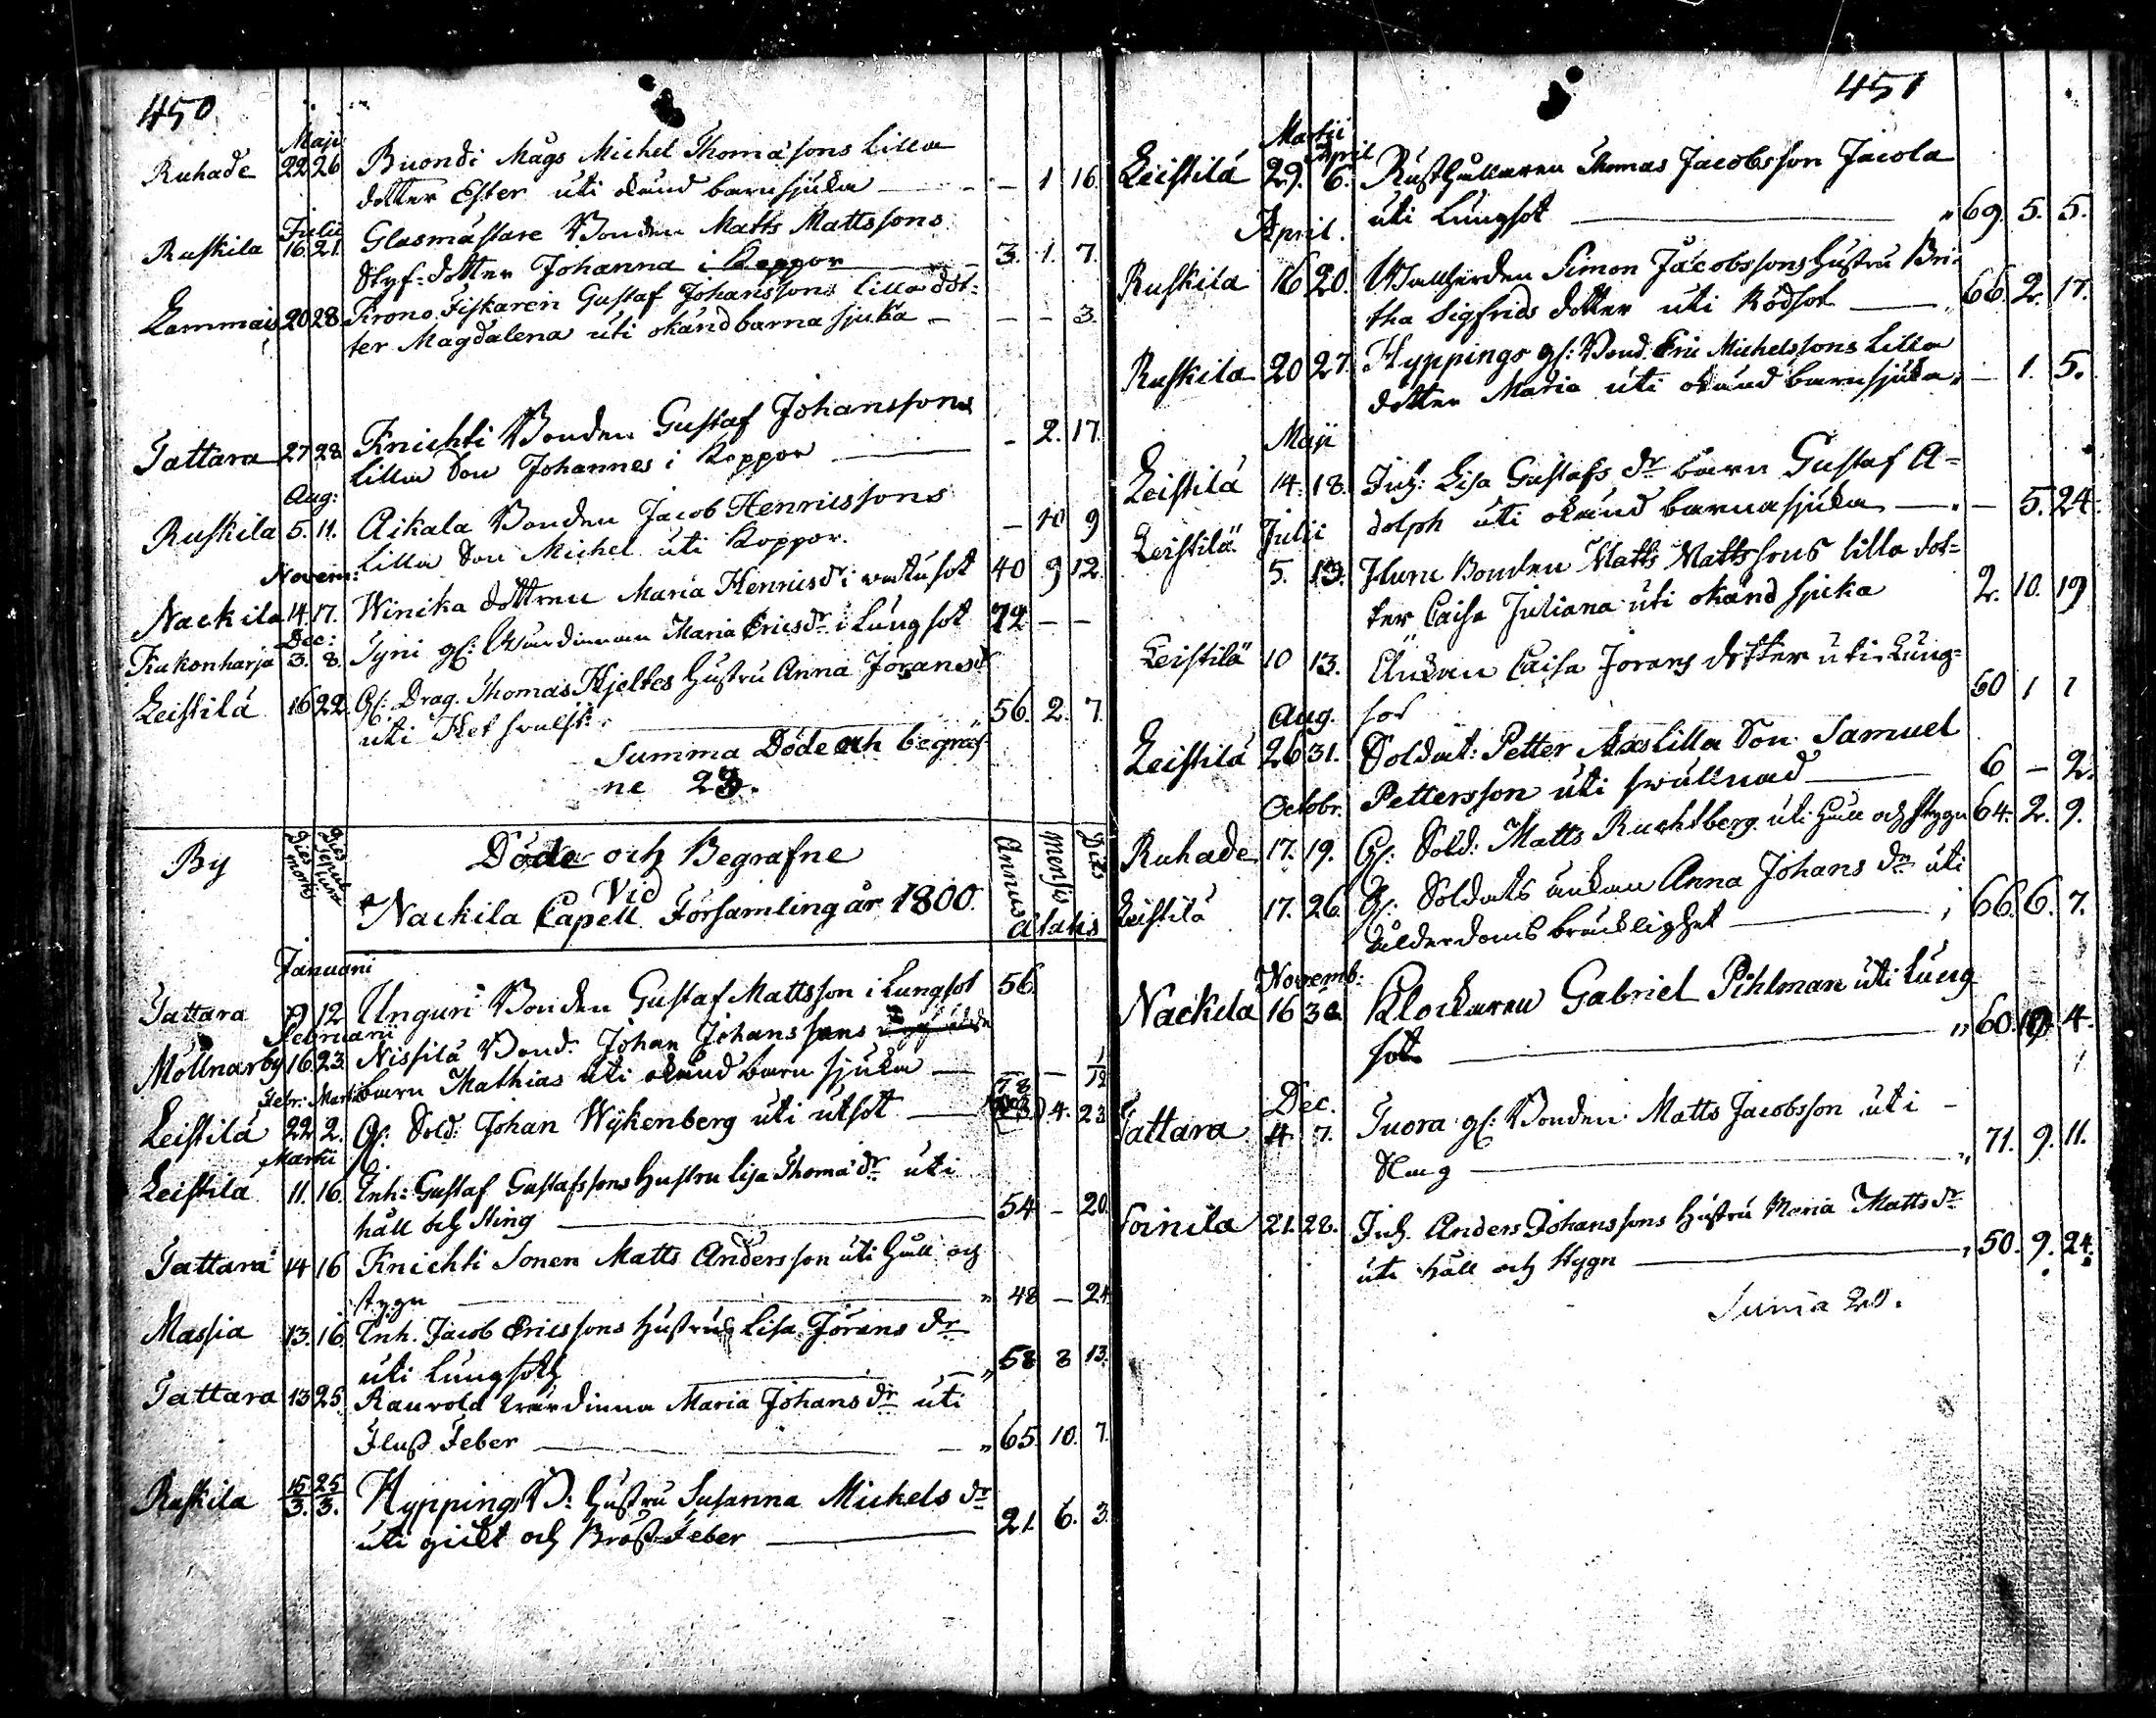 450
Maji
Ruhade 22 26 Buondi Mågs Michel Thomæ sons lilla
dotter Ester uti okänd barnsjuka — 1 16.
Julii
Ruskila 16. 21. Glasmästare Bonden Matts Mattssons
Styf-dotter Johanna i Koppor 3. 1. 7.
Lammais 20 28. Krono Fiskaren Gustaf Johanssons lilla dot-
ter Magdalena uti okänd barnasjuka — — — 3.
Tattara 27 28 Knichti Bonden Gustaf Johanssons
lilla Son Johannes i Koppor — 2. 17.
Aug:
Ruskila 5. 11. Aikala Bonden Jacob Henricssons
lilla Son Michel uti Koppor. — 10 9
Novem:
Nackila 14 17. Winika dottren Maria Henricsdr i sot 40 9 12.
Dec:
Kukonharja 3. 8. Tyni gl: Wärdinnan Maria Ericsdr i Lungsot 72 — —
Leistilä 16 22. Gl: Drag. Thomas Hjeltes Hustru Anna Jöransdr
uti Het svulst 56. 2. 7.
Summa Döde och begraf-
ne 23.
By Dies mortis Dies sepulturæ Döde och Begrafne Annus mensis Dies
Vid
Nackila Capell Församling år 1800. ætatis
Januari
Tattara 9 12 Unguri Bonden Gustaf Mattsson i Lungsot 56.
Februarii
Möllnarby 16. 23. Nissilä Bond. Johan Johanssons
barn Mathias uti okänd barn sjuka — — — 1/12
Febr: Martii
Leistilä 22 2. Gl: Sold: Johan Wykenberg uti utsot — 78 4. 23
Martii
Leistilä 11. 16. Inh: Gustaf Gustafssons Hustru Lisa Thomædr uti
håll och sting 54 — 20.
Tattara 14 16 Knichti Sonen Matts Andersson uti håll och
stygn 48 — 24
Massia 13. 16. Inh. Jacob Ericssons Hustru Lisa Jörans dr
uti Lungsot 58 8 13.
Tattara 13 25 Raurola wärdinna Maria Johansdr uti
Fluß Feber 65. 10. 7.
Ruskila 15/3. 25/3. Hyppings B: Hustru Susanna Michels dr
uti gickt och Bröst Feber 21. 6. 3.
451
Martii April
Leistilä 29. 6. Rusthållaren Thomas Jacobsson Jacola
uti Lungsot 69. 5. 5.
April.
Ruskila 16 20. Wallherden Simon Jacobssons Hustru Bri-
tha Sigfrids dotter uti Rödsot — 66. 2. 17.
Ruskila 20 27. Hyppings gl: Bond: Eric Michelssons lilla
dotter Maria uti okänd barnsjuka — 1. 5.
Maji
Leistilä 14. 18. Inh: Lisa Gustafs dr barn Gustaf A-
dolph uti okänd barnasjuka — — 5. 24.
Leistilä Julii
5. 13. Huru Bonden Matts Mattssons lilla dot-
ter Caisa Juliana uti okänd sjuka 2. 10. 19
Leistilä 10 13. Enkan Caisa Jörans dotter uti Lung-
sot 50 1 1
Aug.
Leistilä 26 31. Soldat: Petter Ax lilla Son Samuel
Pettersson uti swullnad — 6 — 2.
Octobr.
Ruhade 17. 19. Gl: Sold: Matts Ruchtberg uti håll och stygn 64. 2. 9.
Leistilä 17. 26. Gl: Soldats enkan Anna Johans dr uti
ålderdoms bräcklighet 66. 6. 7.
Novemb:
Nackila 16 30. Klockaren Gabriel Pihlman uti Lung
sot 60. 10. 4.
Dec.
Tattara 4. 7. Tuora gl: Bonden Matts Jacobsson uti
Slag 71. 9. 11.
Soinila 21. 28. Inh. Anders Johanssons Hustru Maria Mattsdr
uti håll och stygn 50. 9. 24.
Suma 20.